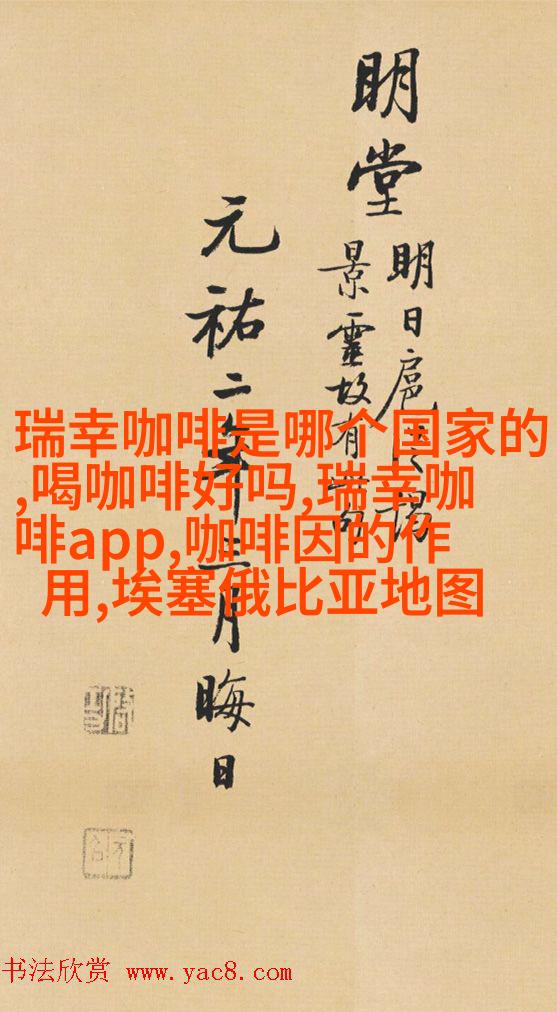 明堂
明日扈
景靈故有
元祐二年三月晦日
瑞幸咖啡是哪个国家的
,喝咖啡好吗,瑞幸咖
啡app,咖啡因的作
用,埃塞俄比亚地图
书法欣赏 www.yac8.com